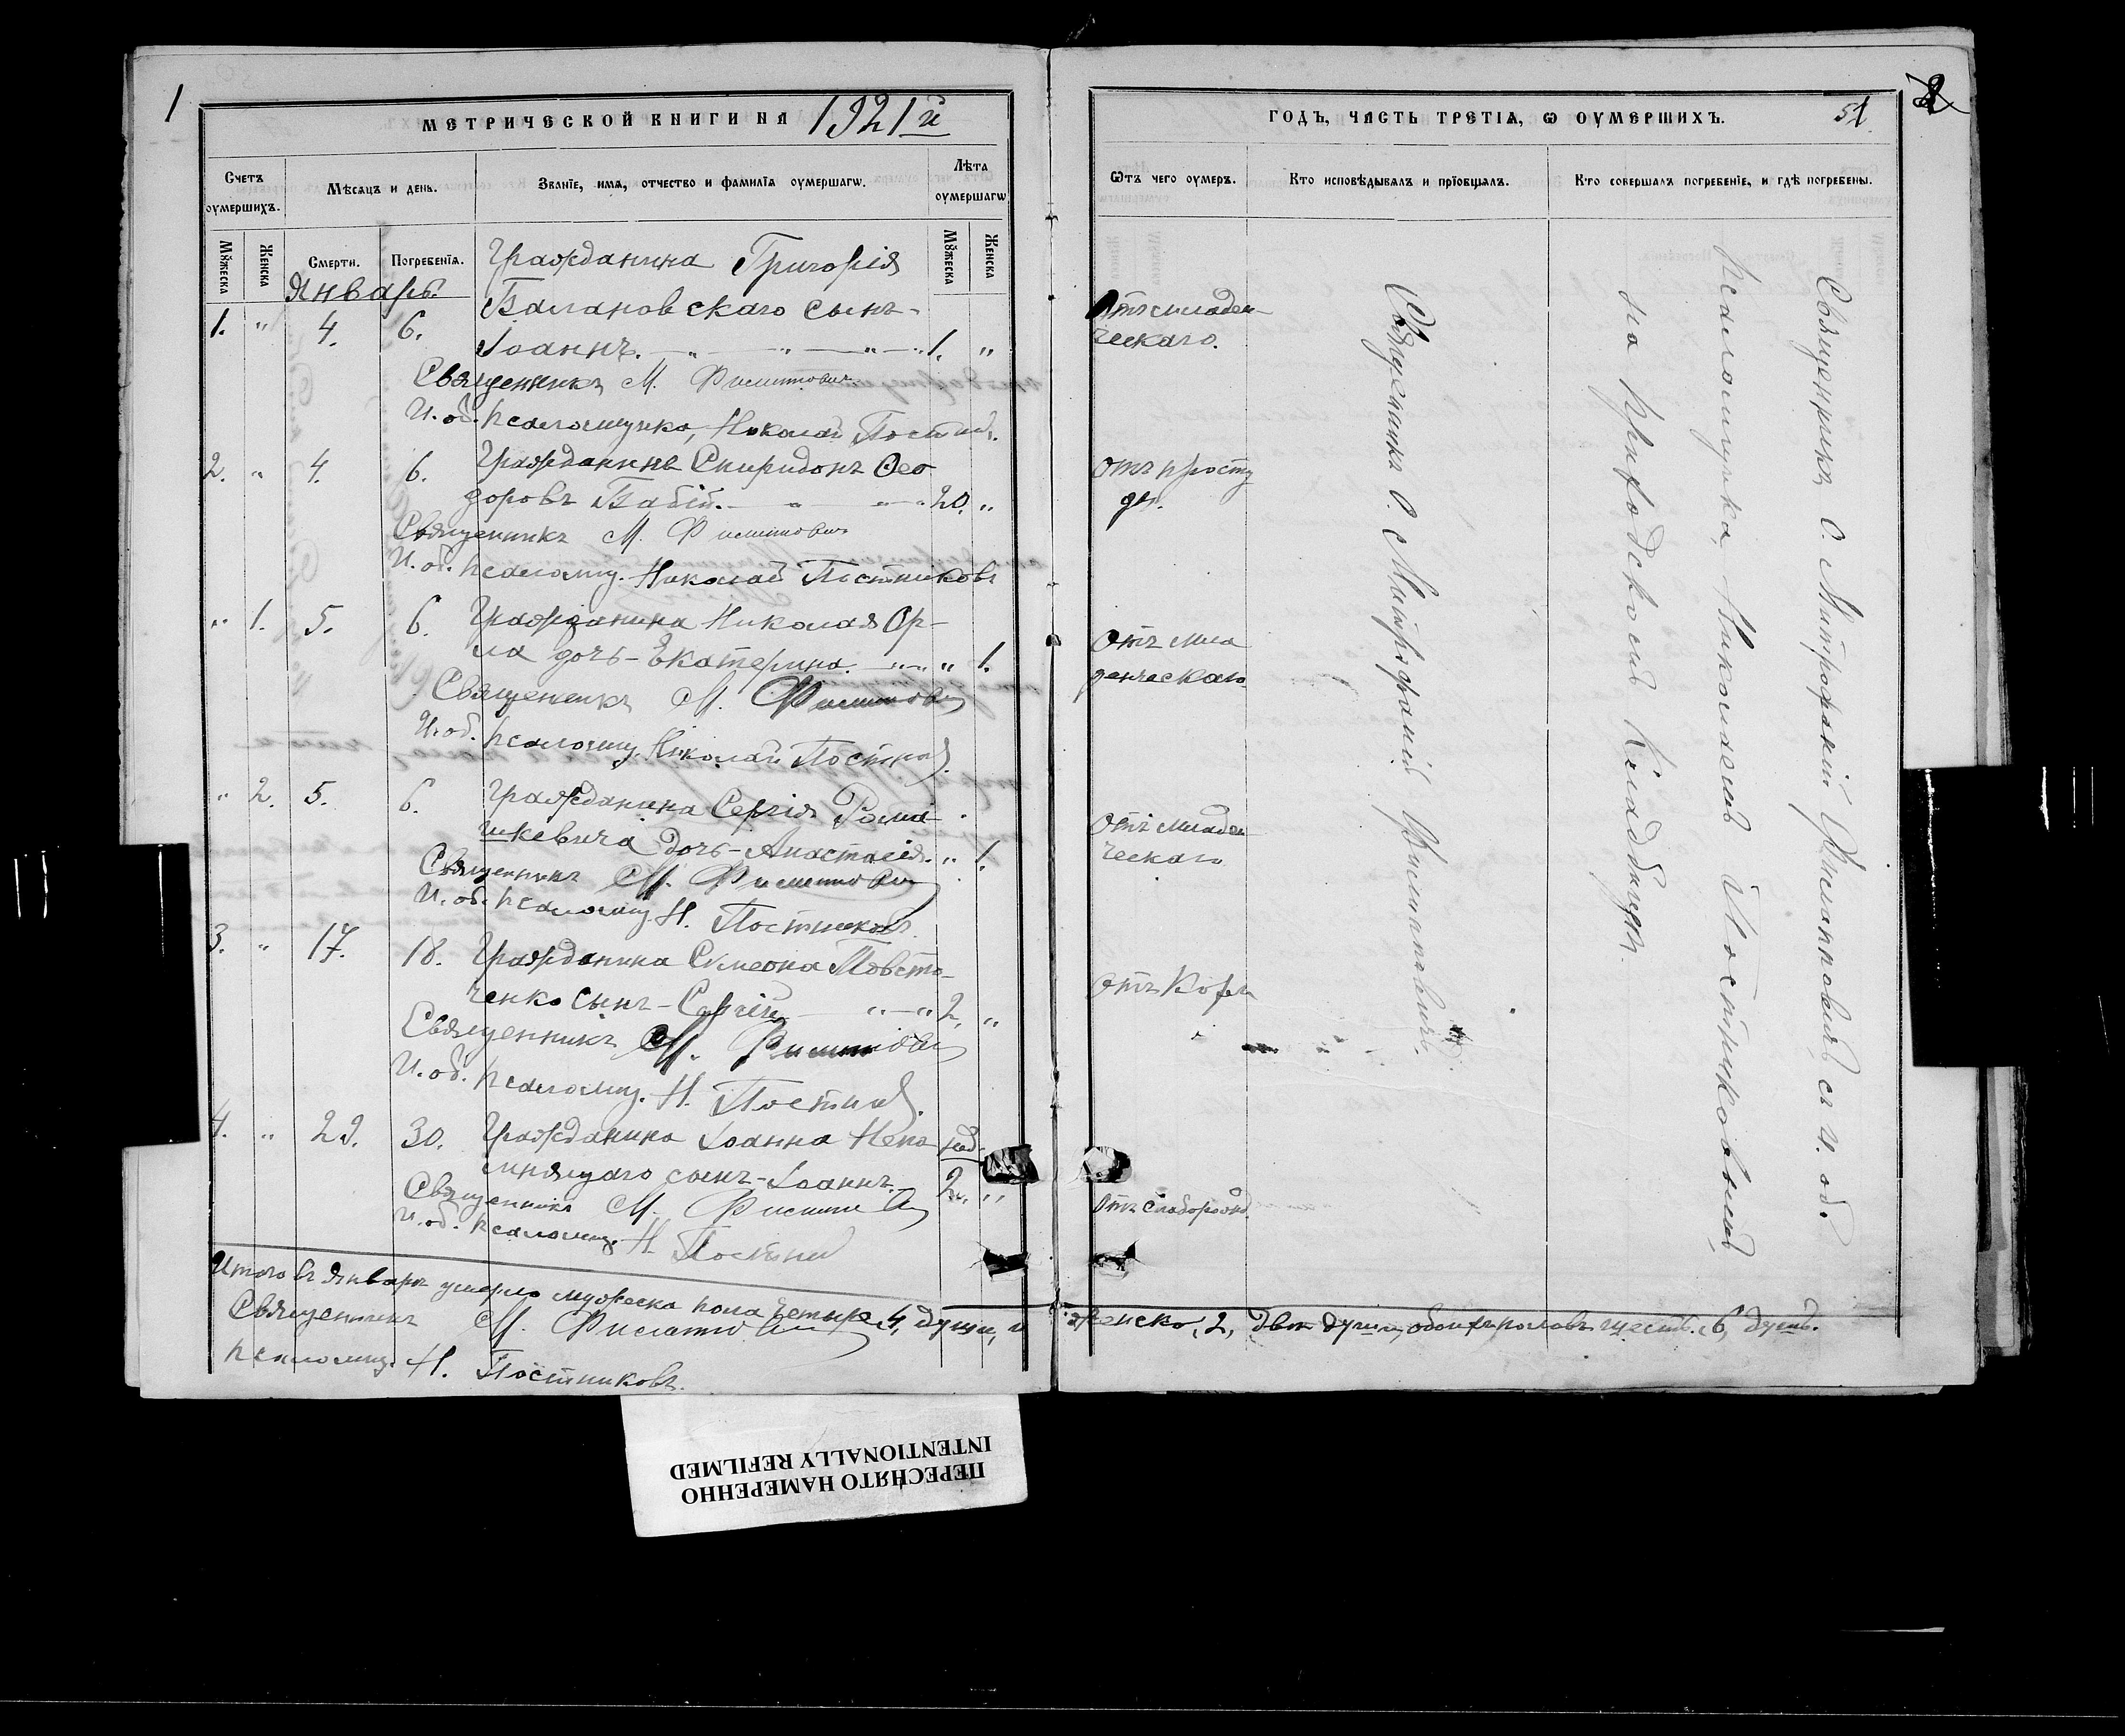 1
МЕТРИЧЕСКОЙ КНИГИ НА 1921 й
Счетъ оумершихъ.
Мѣсяцъ и день.
Званіе, имя, отчество и фамилія оумершагѡ.
Лѣта оумершагѡ
Мꙋжеска
Женска
Смерти.
Погребенія.
Мꙋжеска
Женска
Январь.
Гражданина Григорія
Балановскаго сынъ-
1. " 4. 6. Іоаннъ. — " — " — " — 1. "
Священникъ М. Филиппович
И. об. псаломщика, Николай Постни
2. " 4. 6. Гражданинъ Спиридонъ Ѳео
доровъ Бабій. — " — " 20. "
Священникъ М. Филиппович
И. об. псаломщ. Николай Постниковъ
" 1. 5. 6. Гражданина Николая Ор-
ла дочь - Екатерина. — " — " 1.
Священникъ М. Филиппович
И. об. псаломщ. Николай Постник
" 2. 5. 6. Гражданина Сергія Рома
шкевича дочь - Анастасія. " 1.
Священникъ М. Филиппович
И. об. псаломщ. Н. Постников
3. " 17. 18. Гражданина Симеона Товсто-
ченко сынъ - Сергій — " — " 2. "
Священникъ М. Филиппович
И. об. псаломщ. Н. Постник
4. " 29. 30. Гражданина Іоанна Непо нед.
мнящаго сынъ - Іоаннъ. — 2. "
Священникъ М. Филиппович
И. об. псаломщ. Н. Постник
Итого въ Январѣ умерло мужеска пола четыре, 4, души, и
Священникъ М. Филиппович
псаломщ. Н. Постниковъ.
51
ГОДЪ, ЧАСТЬ ТРЕТІЯ, Ѡ ОУМЕРШИХЪ.
Ѿтъ чего оумеръ.
Кто исповѣдывалъ и пріобщалъ.
Кто совершалъ погребеніе, и гдѣ погребены.
Отъ младен-
ческаго.
Отъ просту
ды.
Отъ мла
денческаго
Отъ младен
ческаго
Отъ Кори
Отъ слаборожд.
Священникъ О. Митрофаній Филипповичъ.
Священникъ О. Митрофаній Филипповичъ, съ и. об.
псаломщика, Николаемъ Постниковымъ,
на приходскомъ кладбищѣ.
женска, 2, двѣ души, обоихъ половъ шесть, 6, душъ.
ПЕРЕСНЯТО НАМЕРЕННО
INTENTIONALLY REFILMED